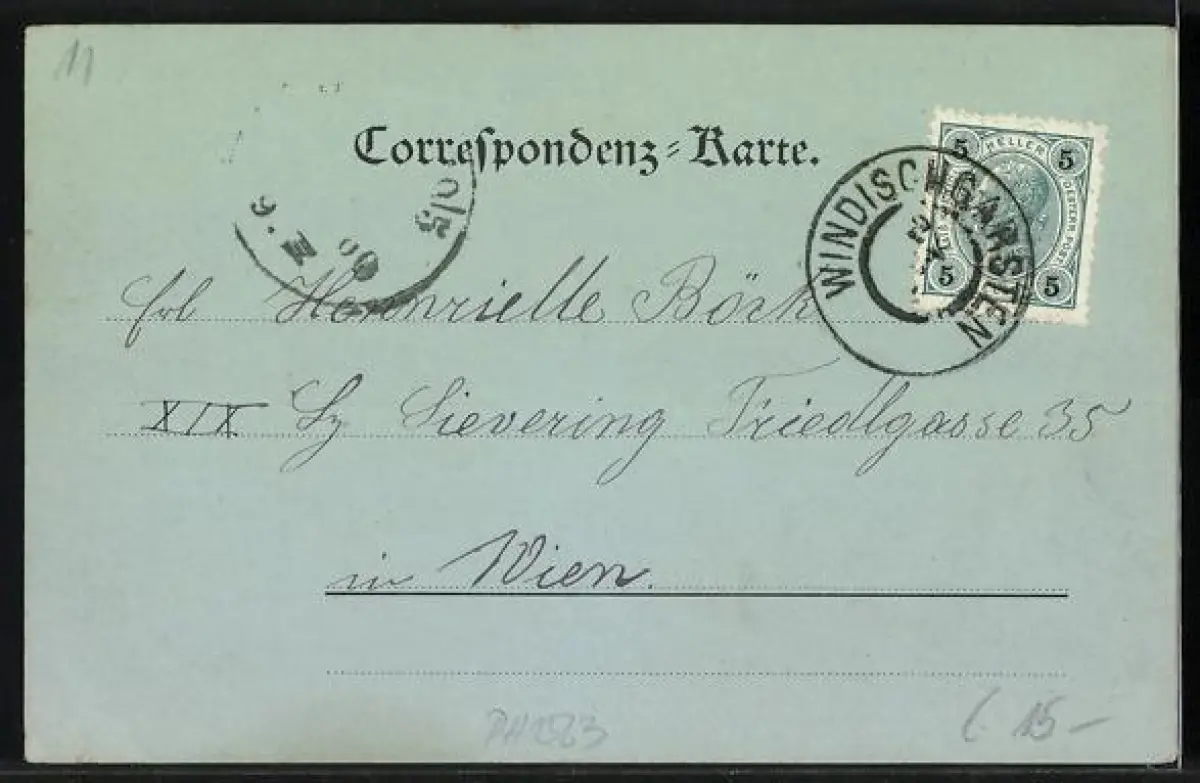 11
Correspondenz-Karte.
5 HELLER 5
OESTERR. POST.
5 5
WINDISCHGARSTEN
9. III 00
Frl Hennrielle Böck
XIX Sievering Friedlgasse 35
in Wien.
PH2563
15-